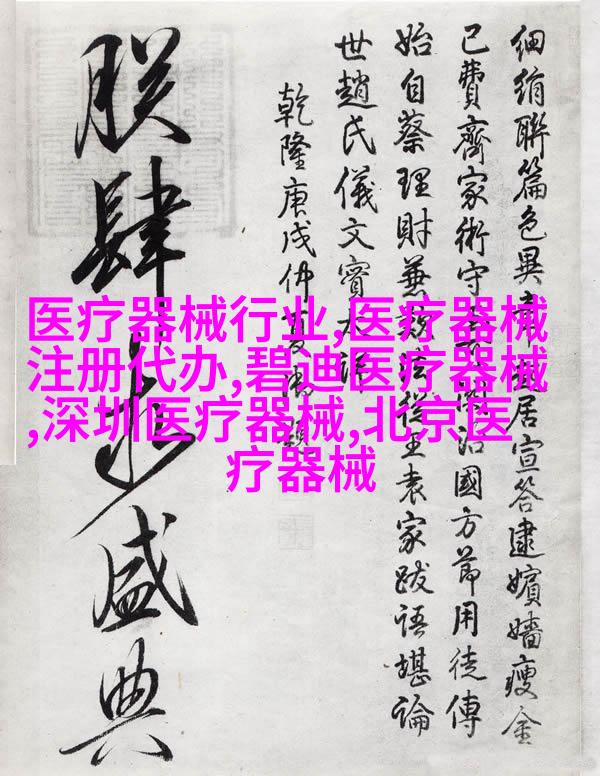 細絹聯篇色異居宣答逮嬪嬙瘦金
已費齊家術守治國方節用徒傳
始自蔡理財兼法從王袁家跋語堪論
世趙氏儀文賓
乾隆庚戌仲夏御
朕肆盛典
医疗器械行业,医疗器械
注册代办,碧迪医疗器械
,深圳医疗器械,北京医
疗器械